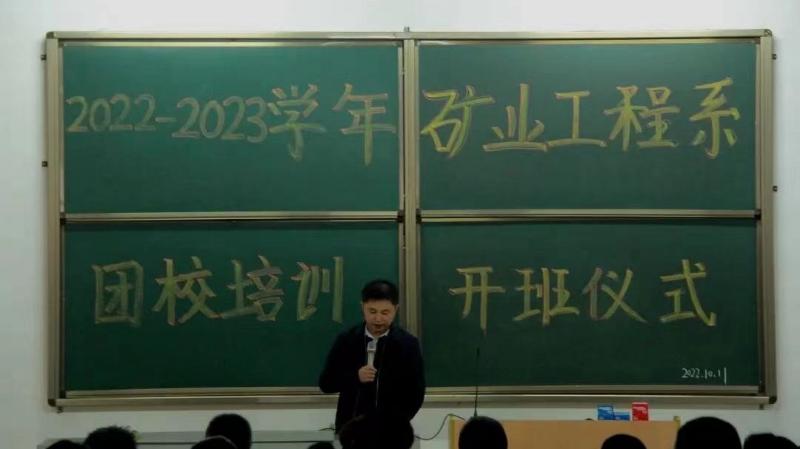 2022-2023学年 矿业工程系
团校培训 开班仪式
2022.10.11